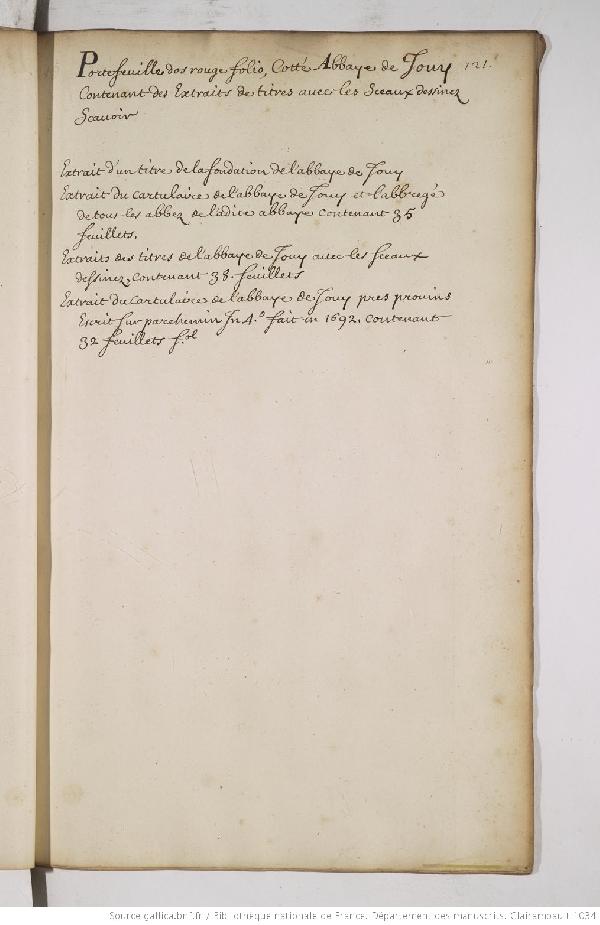 Portefeuille dos rouge folio, Cotté Abbaye de Jouy 121.
Contenant des Extraits de titres avec les Sceaux dessinez
Scauoir
Extrait d'un titre de la fondation de l'abbaye de Jouy
Extrait du Cartulaire de l'abbaye de Jouy et l'abbregé
de tous les abbez de ladite abbaye contenant 35
feuillets.
Extraits des titres de l'abbaye de Jouy auec les sceaux
dessinez, contenant 38. feuillets
Extrait du Cartulaire de l'abbaye de Jouy pres prouins
Escrit sur parchemin In 4.º fait in 1692. contenant
32 feuillets
Source gallica.bnf.fr / Bibliothèque nationale de France. Département des manuscrits. Clairambault 1034